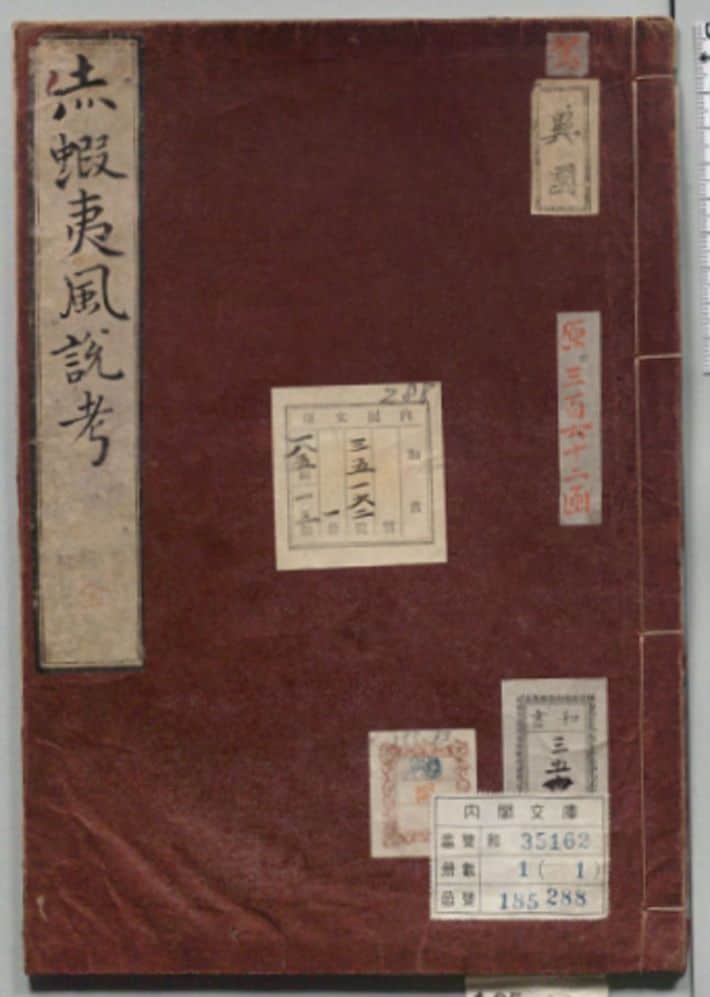 赤蝦夷風說考
異國
原三百六十二函
288
內閣文庫
和書
三五一六二
一
一八五
和書
三五
內閣文庫
番號 和 35162
冊數 1 ( 1 )
函號 185 288